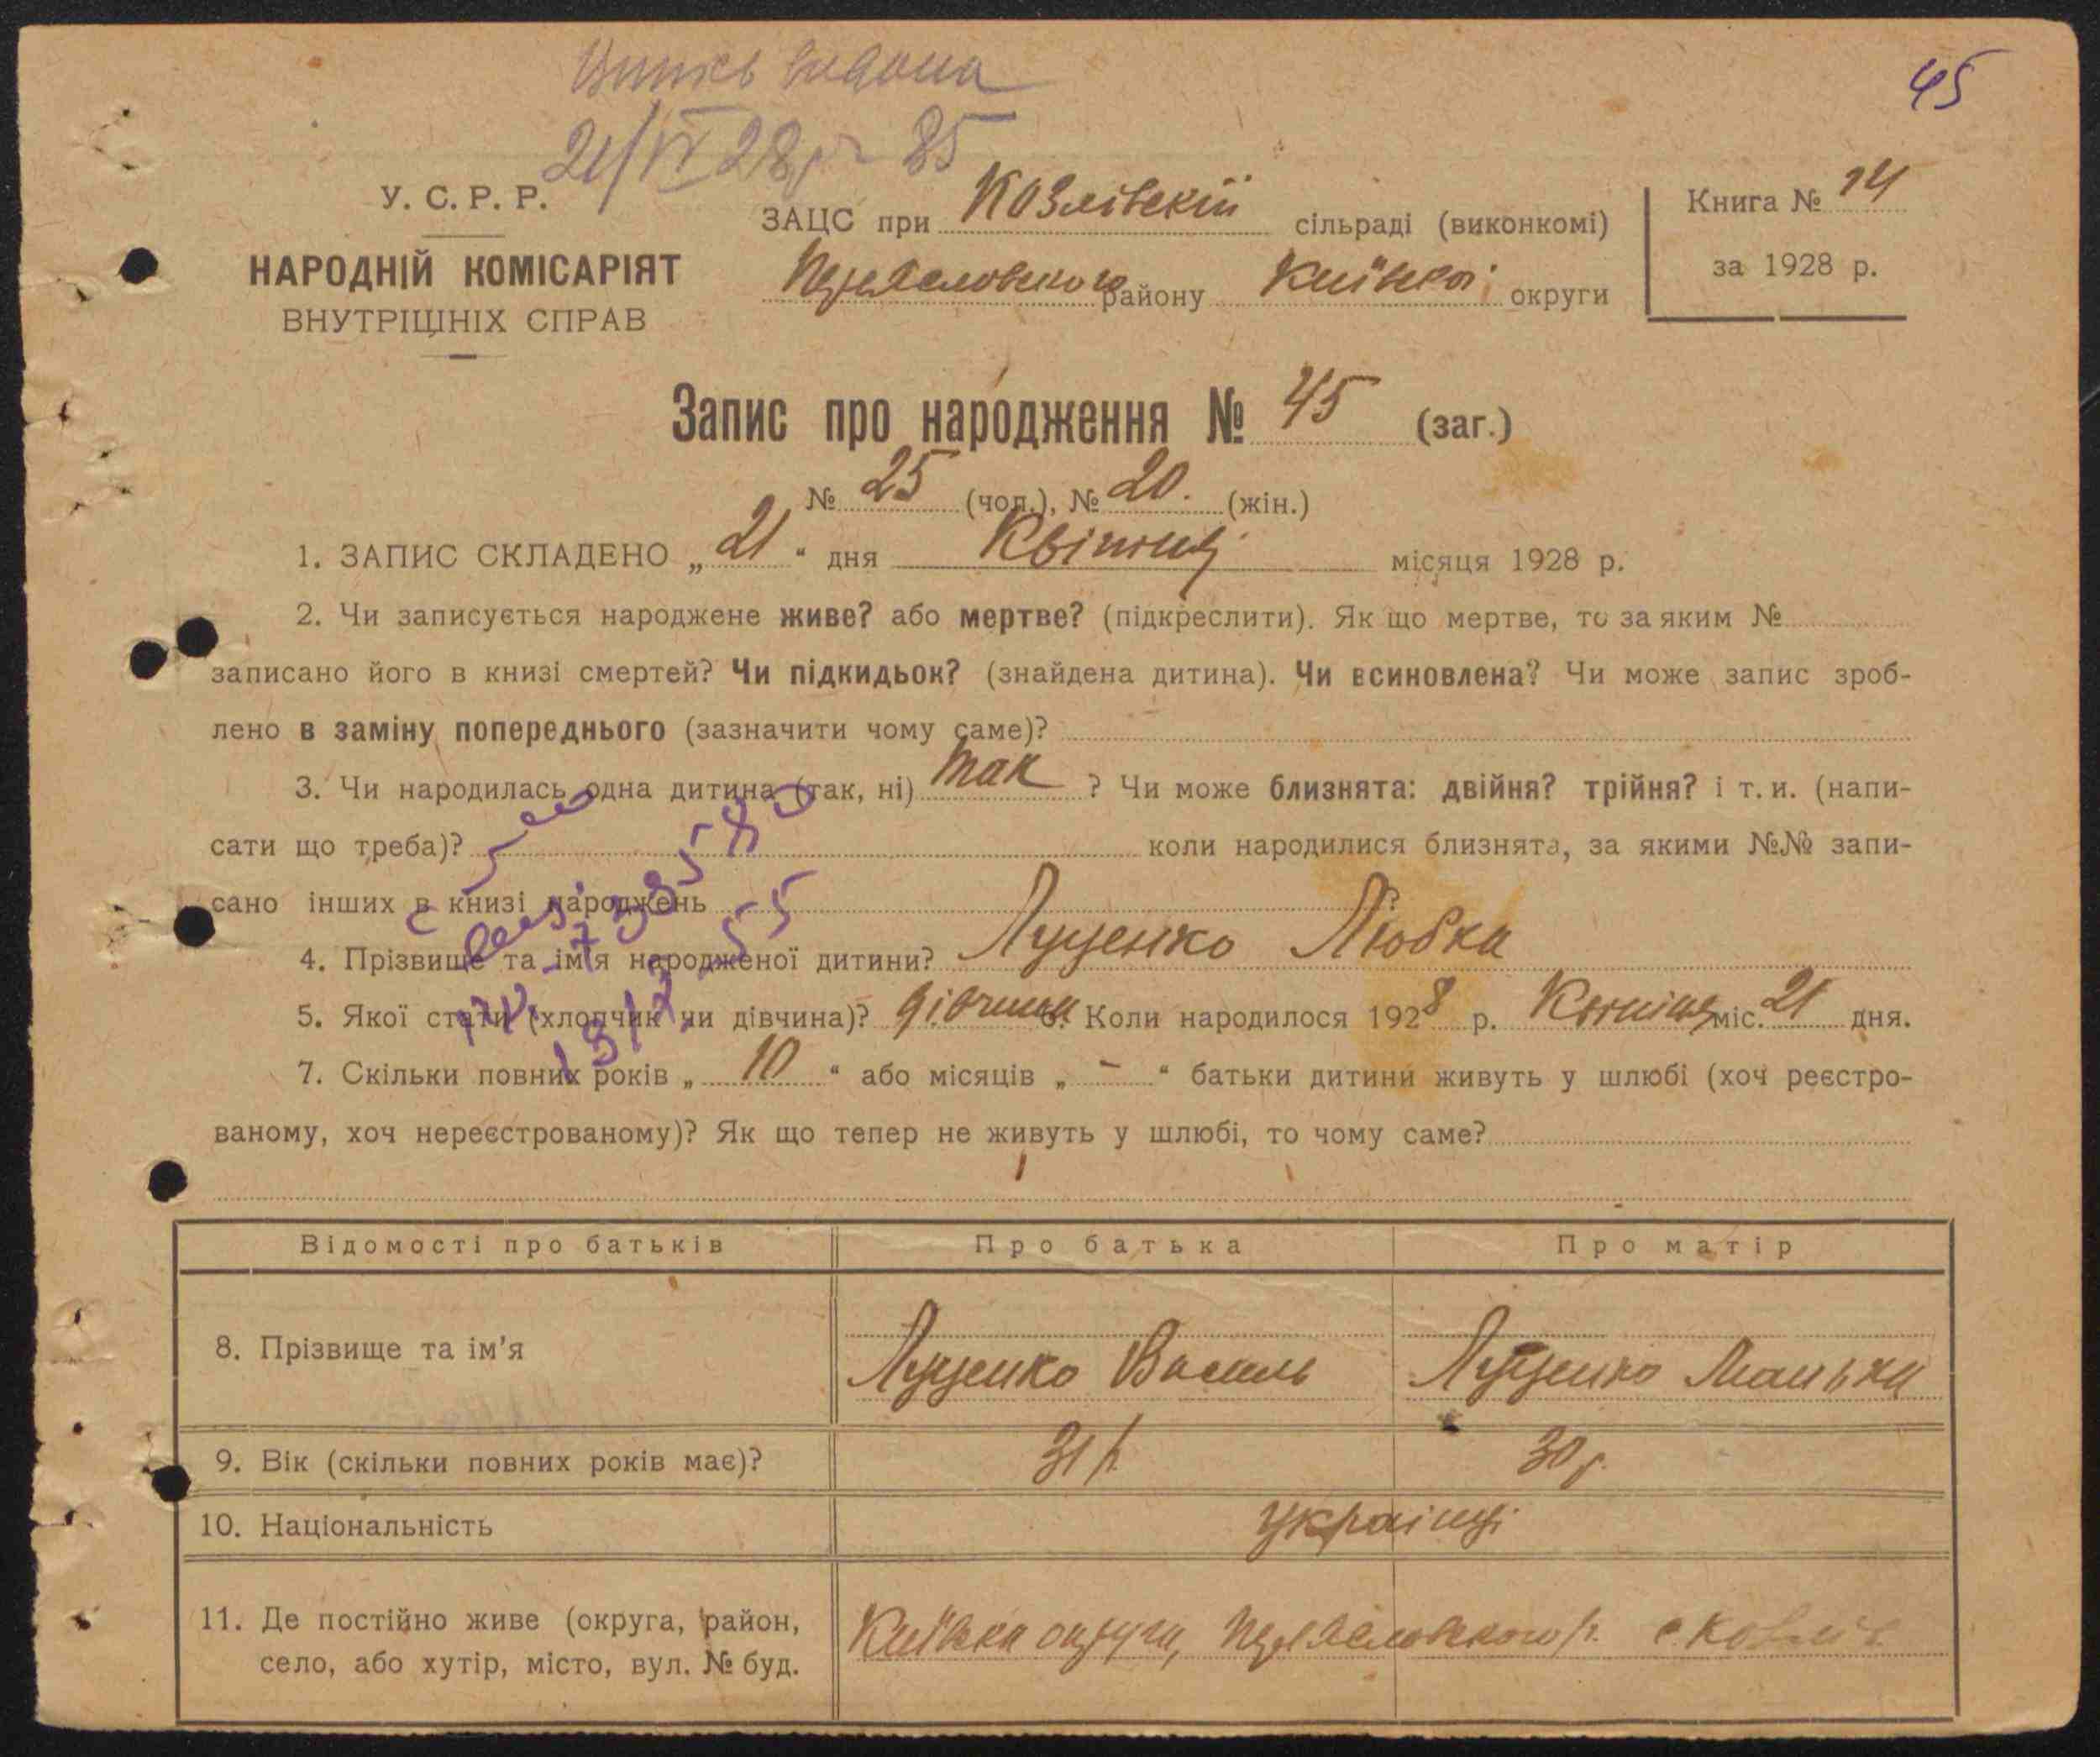 45
21/VI 28 р 85
У. С. Р. Р.
НАРОДНІЙ КОМІСАРІЯТ
ВНУТРІШНІХ СПРАВ
ЗАЦС при Козлівскій сільраді (виконкомі)
району Київскої округи
Книга № 14
за 1928 р.
Запис про народження № 45 (заг.)
№ 25 (чол.), № 20. (жін.)
1. ЗАПИС СКЛАДЕНО „ 21 “ дня Квітня місяця 1928 р.
2. Чи записується народжене живе? або мертве? (підкреслити). Як що мертве, то за яким №
записано його в книзі смертей? Чи підкидьок? (знайдена дитина). Чи всиновлена? Чи може запис зроб-
лено в заміну попереднього (зазначити чому саме)?
3. Чи народилась одна дитина (так, ні) так ? Чи може близнята: двійня? трійня? і т. и. (напи-
сати що треба)? коли народилися близнята, за якими №№ запи-
сано інших в книзі народжень ?
4. Прізвище та ім'я народженої дитини? Луценко Любка
5. Якої стати (хлопчик чи дівчина)? дівчина 6. Коли народилося 1928 р. Квітня міс. 21 дня.
7. Скільки повних років „ 10 “ або місяців „ – “ батьки дитини живуть у шлюбі (хоч реєстро-
ваному, хоч нереєстрованому)? Як що тепер не живуть у шлюбі, то чому саме?
Відомості про батьків Про батька Про матір
8. Прізвище та ім'я Луценко Василь Луценко Манька
9. Вік (скільки повних років має)? 31 р. 30 р.
10. Національність українці
11. Де постійно живе (округа, район,
село, або хутір, місто, вул. № буд.
Київска округа, р. с. Козлів